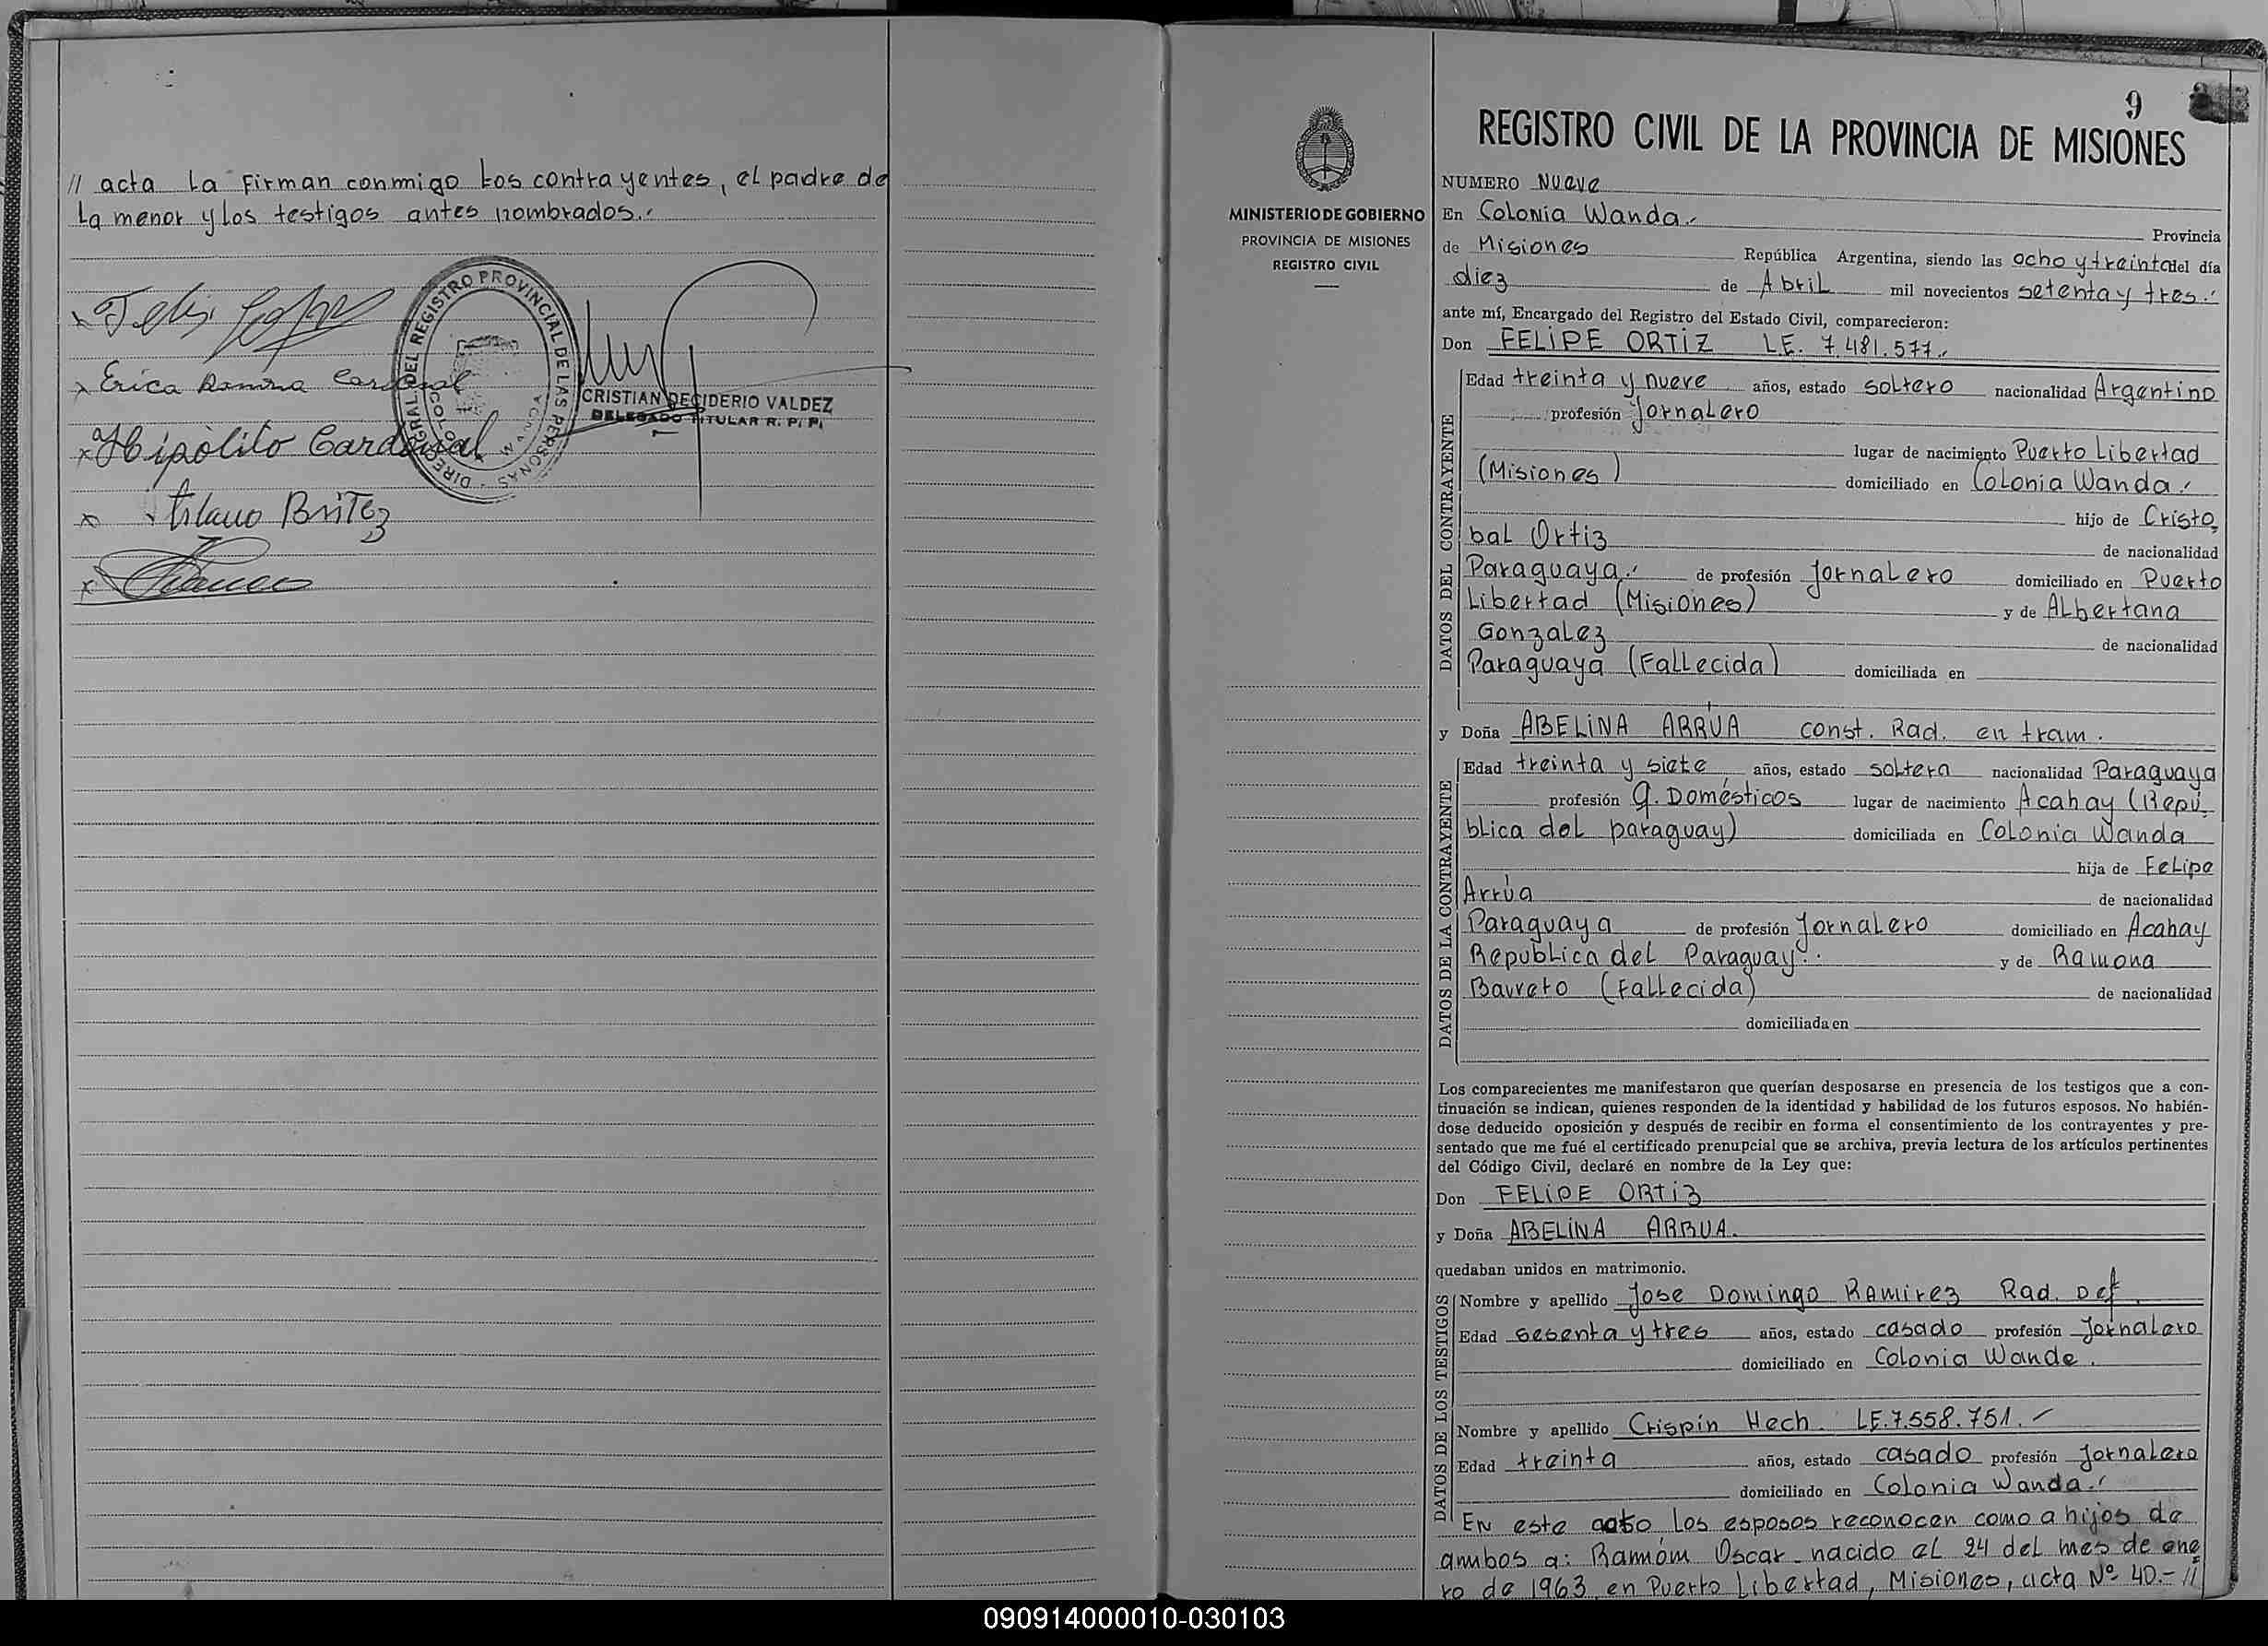 // acta la firman conmigo los contrayentes, el padre de
la menor y los testigos antes nombrados.
x Erica Ramona Cardonal
x Hipòlito Cardonal
x Britez
x
DIREC. GRAL. DEL REGISTRO PROVINCIAL DE LAS PERSONAS
WANDA
CRISTIAN DECIDERIO VALDEZ
DELEGADO TITULAR R. P. P.
9
MINISTERIO DE GOBIERNO
PROVINCIA DE MISIONES
REGISTRO CIVIL
REGISTRO CIVIL DE LA PROVINCIA DE MISIONES
NUMERO Nueve
En Colonia Wanda.- Provincia
de Misiones República Argentina, siendo las ocho y treinta del día
diez de Abril mil novecientos setenta y tres.-
ante mí, Encargado del Registro del Estado Civil, comparecieron:
Don FELIPE ORTIZ L.E. 7.481.577.-
DATOS DEL CONTRAYENTE
Edad treinta y nueve años, estado soltero nacionalidad Argentino
profesión Jornalero
lugar de nacimiento Puerto Libertad
(Misiones) domiciliado en Colonia Wanda.-
hijo de Cristo
bal Ortiz de nacionalidad
Paraguaya.- de profesión Jornalero domiciliado en Puerto
Libertad (Misiones) y de Albertana
Gonzalez de nacionalidad
Paraguaya (Fallecida) domiciliada en
y Doña ABELINA ARRÚA const. Rad. en tram.
DATOS DE LA CONTRAYENTE
Edad treinta y siete años, estado soltera nacionalidad Paraguaya
profesión Q. Domésticos lugar de nacimiento Acahay (Repú-
blica del paraguay) domiciliada en Colonia Wanda
hija de Felipe
Arrúa de nacionalidad
Paraguaya de profesión Jornalero domiciliado en Acahay
Republica del Paraguay.- y de Ramona
Barreto (Fallecida) de nacionalidad
domiciliada en
Los comparecientes me manifestaron que querían desposarse en presencia de los testigos que a con-
tinuación se indican, quienes responden de la identidad y habilidad de los futuros esposos. No habién-
dose deducido oposición y después de recibir en forma el consentimiento de los contrayentes y pre-
sentado que me fué el certificado prenupcial que se archiva, previa lectura de los artículos pertinentes
del Código Civil, declaré en nombre de la Ley que:
Don FELIPE ORTIZ
y Doña ABELINA ARRUA.
quedaban unidos en matrimonio.
DATOS DE LOS TESTIGOS
Nombre y apellido Jose Domingo Ramirez Rad. Def.
Edad sesenta y tres años, estado casado profesión Jornalero
domiciliado en Colonia Wande.
Nombre y apellido Crispin Hech. LE.7.558.751.-
Edad treinta años, estado casado profesión Jornalero
domiciliado en Colonia Wanda.-
En este acto los esposos reconocen como a hijos de
ambos a: Ramóm Oscar nacido el 24 del mes de ene
ro de 1963 en Puerto Libertad, Misiones, acta Nº 40.- //
090914000010-030103